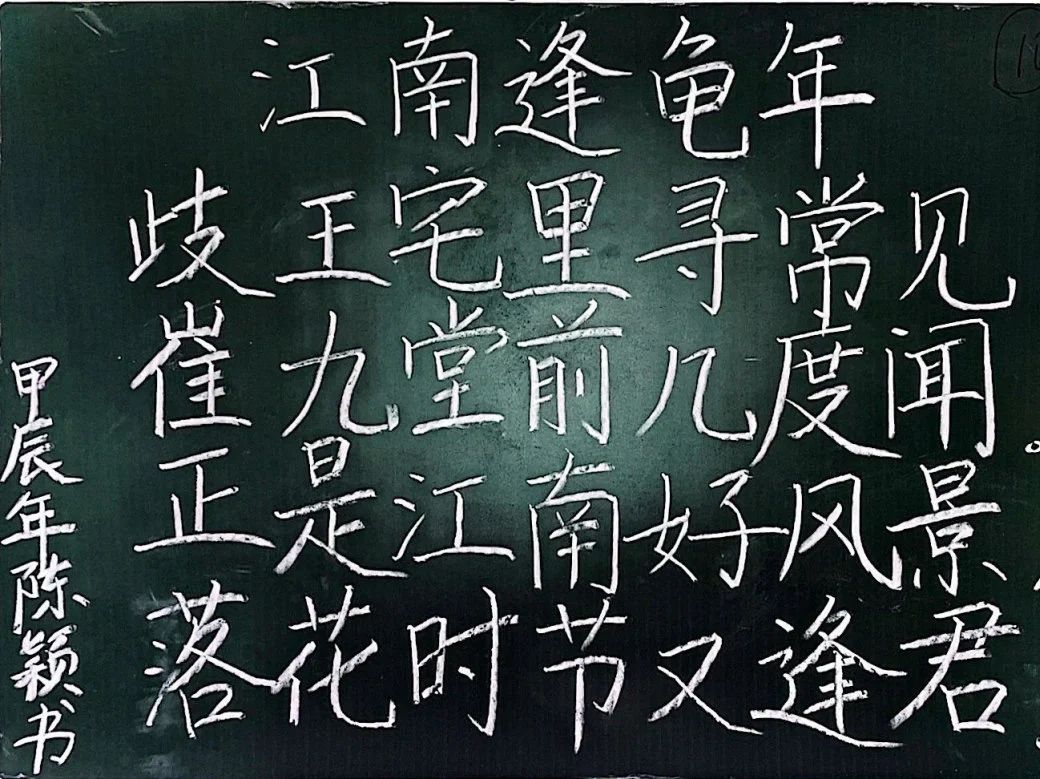 江南逢龟年
歧王宅里寻常见
崔九堂前几度闻。
正是江南好风景
落花时节又逢君
甲辰年陈颖书